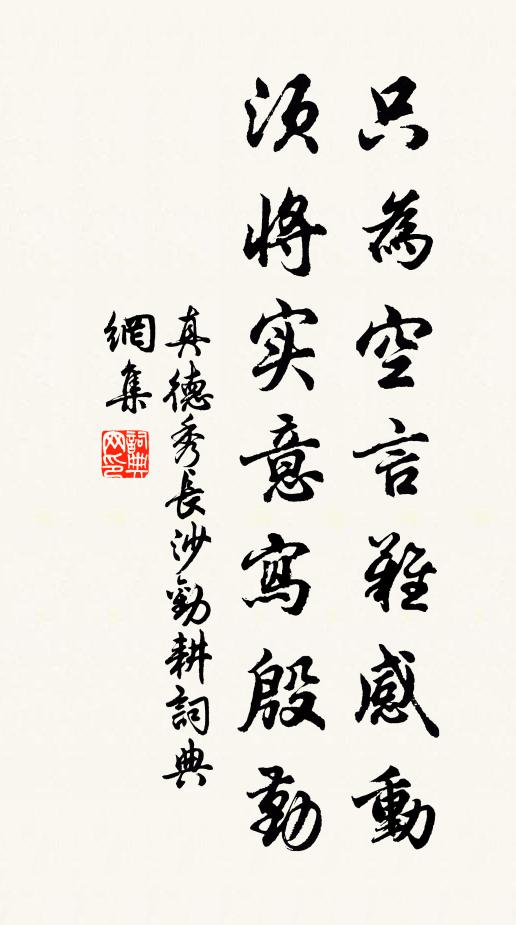 只為空言難感動
須将实意寫殷勤
真德秀長沙勸耕詞典
網集
詞典網印